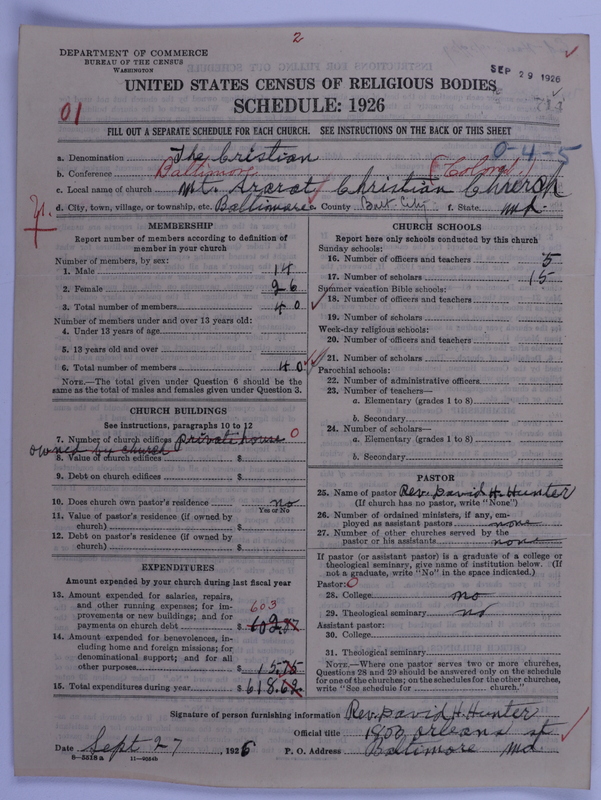 2
DEPARTMENT OF COMMERCE
BUREAU OF THE CENSUS
WASHINGTON
SEP 29 1926
UNITED STATES CENSUS OF RELIGIOUS BODIES
SCHEDULE: 1926
01
FILL OUT A SEPARATE SCHEDULE FOR EACH CHURCH. SEE INSTRUCTIONS ON THE BACK OF THIS SHEET
0-4-5
a. Denomination The Cristian
b. Conference Baltimore (Colored)
c. Local name of church Mt. Ararat Christian Chrerch
d. City, town, village, or township, etc. Baltimore e. County Balt City f. State Md
MEMBERSHIP
Report number of members according to definition of
member in your church
Number of members, by sex:
1. Male 14
2. Female 26
3. Total number of members 40
Number of members under and over 13 years old:
4. Under 13 years of age
5. 13 years old and over
6. Total number of members 40
NOTE.—The total given under Question 6 should be the
same as the total of males and females given under Question 3.
CHURCH BUILDINGS
See instructions, paragraphs 10 to 12
7. Number of church edifices private house 0
owned by church
8. Value of church edifices $
9. Debt on church edifices $
10. Does church own pastor's residence no
Yes or No
11. Value of pastor's residence (if owned by
church) $
12. Debt on pastor's residence (if owned by
church) $
EXPENDITURES
Amount expended by your church during last fiscal year
13. Amount expended for salaries, repairs,
and other running expenses; for im-
provements or new buildings; and for
603
payments on church debt $ 602.87
14. Amount expended for benevolences, in-
cluding home and foreign missions; for
denominational support; and for all
other purposes 15.75
15. Total expenditures during year $ 618.62
CHURCH SCHOOLS
Report here only schools conducted by this church
Sunday schools:
16. Number of officers and teachers 5
17. Number of scholars 15
Summer vacation Bible schools:
18. Number of officers and teachers
19. Number of scholars
Week-day religious schools:
20. Number of officers and teachers
21. Number of scholars
Parochial schools:
22. Number of administrative officers
23. Number of teachers—
a. Elementary (grades 1 to 8)
b. Secondary
24. Number of scholars—
a. Elementary (grades 1 to 8)
b. Secondary
PASTOR
25. Name of pastor Rev. David H. Hunter
(If church has no pastor, write "None")
26. Number of ordained ministers, if any, em-
ployed as assistant pastors none
27. Number of other churches served by the
pastor or his assistants none
If pastor (or assistant pastor) is a graduate of a college or
theological seminary, give name of institution below. (If
not a graduate, write "No" in the space indicated.)
Pastor: 0
28. College no
29. Theological seminary no
Assistant pastor:
30. College
31. Theological seminary
NOTE.—Where one pastor serves two or more churches,
Questions 28 and 29 should be answered only on the schedule
for one of the churches; on the schedules for the other churches,
write "See schedule for church."
Signature of person furnishing information Rev. David H. Hunter
Official title 1800 Orleans st
Date Sept 27, 1926 P. O. Address Baltimore Md.
8—5518a 11—9554b